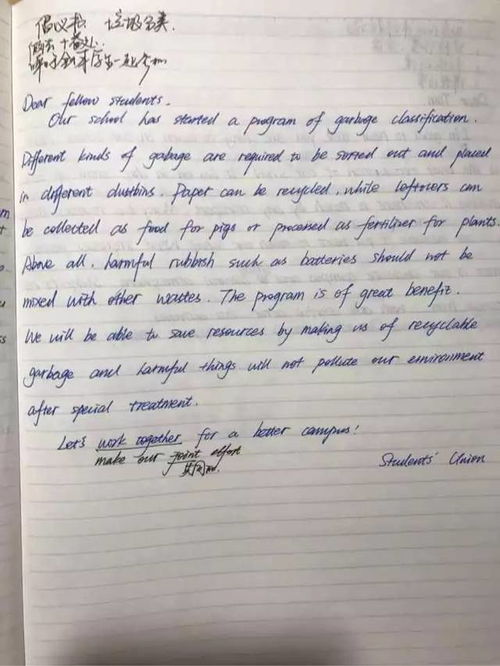 倡议书 垃圾分类
Dear fellow students.
Our school has started a program of garbage classification.
Different kinds of gabage are required to be sorted out and placed
in different dustbins. Paper can be recycled, while leftovers can
be collected as food for pigs or processed as fertilizer for plants.
Above all, harmful rubbish such as batteries should not be
mixed with other wastes. The program is of great benefit.
We will be able to save resources by making us of recyclable
garbage and harmful things will not pollute our environment
after special treatment.
Let's work together for a better campus!
make our joint effort
共同的
Students' Union